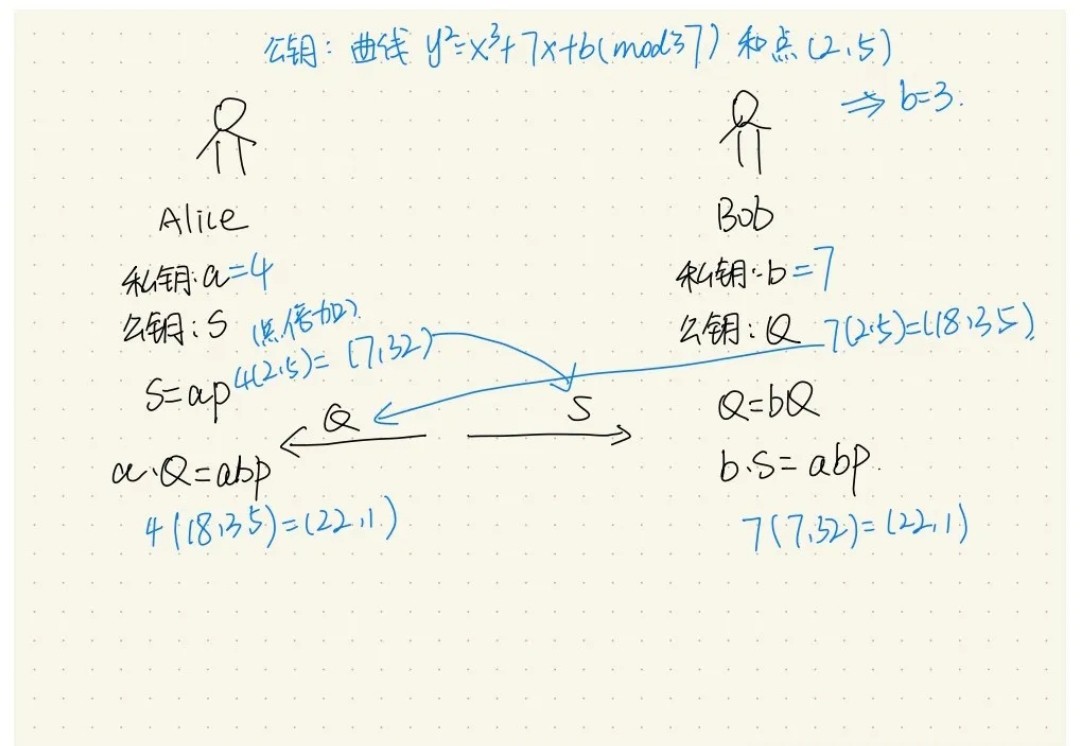 公钥: 曲线 y²=x³+7x+b(mod37) 和点(2,5)
⇒ b=3.
Alice
私钥:a=4
公钥:S (点倍加)
S=ap 4(2,5)=(7,32)
Q
a·Q=abp
4(18,35)=(22,1)
Bob
私钥:b=7
公钥:Q 7(2,5)=(18,35)
S
Q=bQ
b·S=abp.
7(7,32)=(22,1)